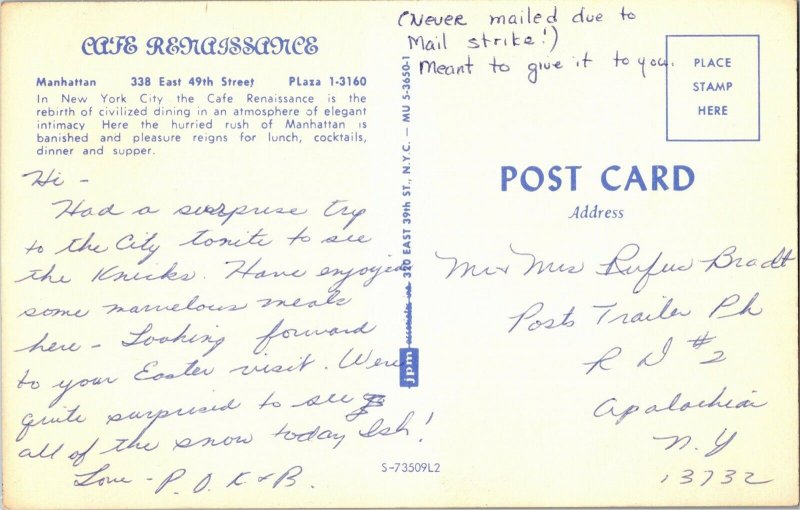 CAFE RENAISSANCE
Manhattan 338 East 49th Street PLaza 1-3160
In New York City the Cafe Renaissance is the
rebirth of civilized dining in an atmosphere of elegant
intimacy Here the hurried rush of Manhattan is
banished and pleasure reigns for lunch, cocktails,
dinner and supper.
Hi -
Had a surprise try
to the City tonite to see
the Knicks. Have enjoyed
some marvelous meals
here - Looking forward
to your Easter visit. Were
quite surprised to see
all of the snow today Ish!
Love - P. O. K & B.
jpm associates inc 320 EAST 39th ST., N.Y.C. — MU 5-3650-1
S-73509L2
(Never mailed due to
Mail strike!)
Meant to give it to you.
PLACE
STAMP
HERE
POST CARD
Address
Mr & Mrs Rufus Bradt
Posts Trailer Pk
R D #2
Apalachin
N. Y
13732